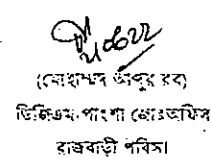 (মোহাম্মদ আব্দুর রব)
ডিজিএম-পাংশা জোনাল অফিস
রাজবাড়ী পবিস।